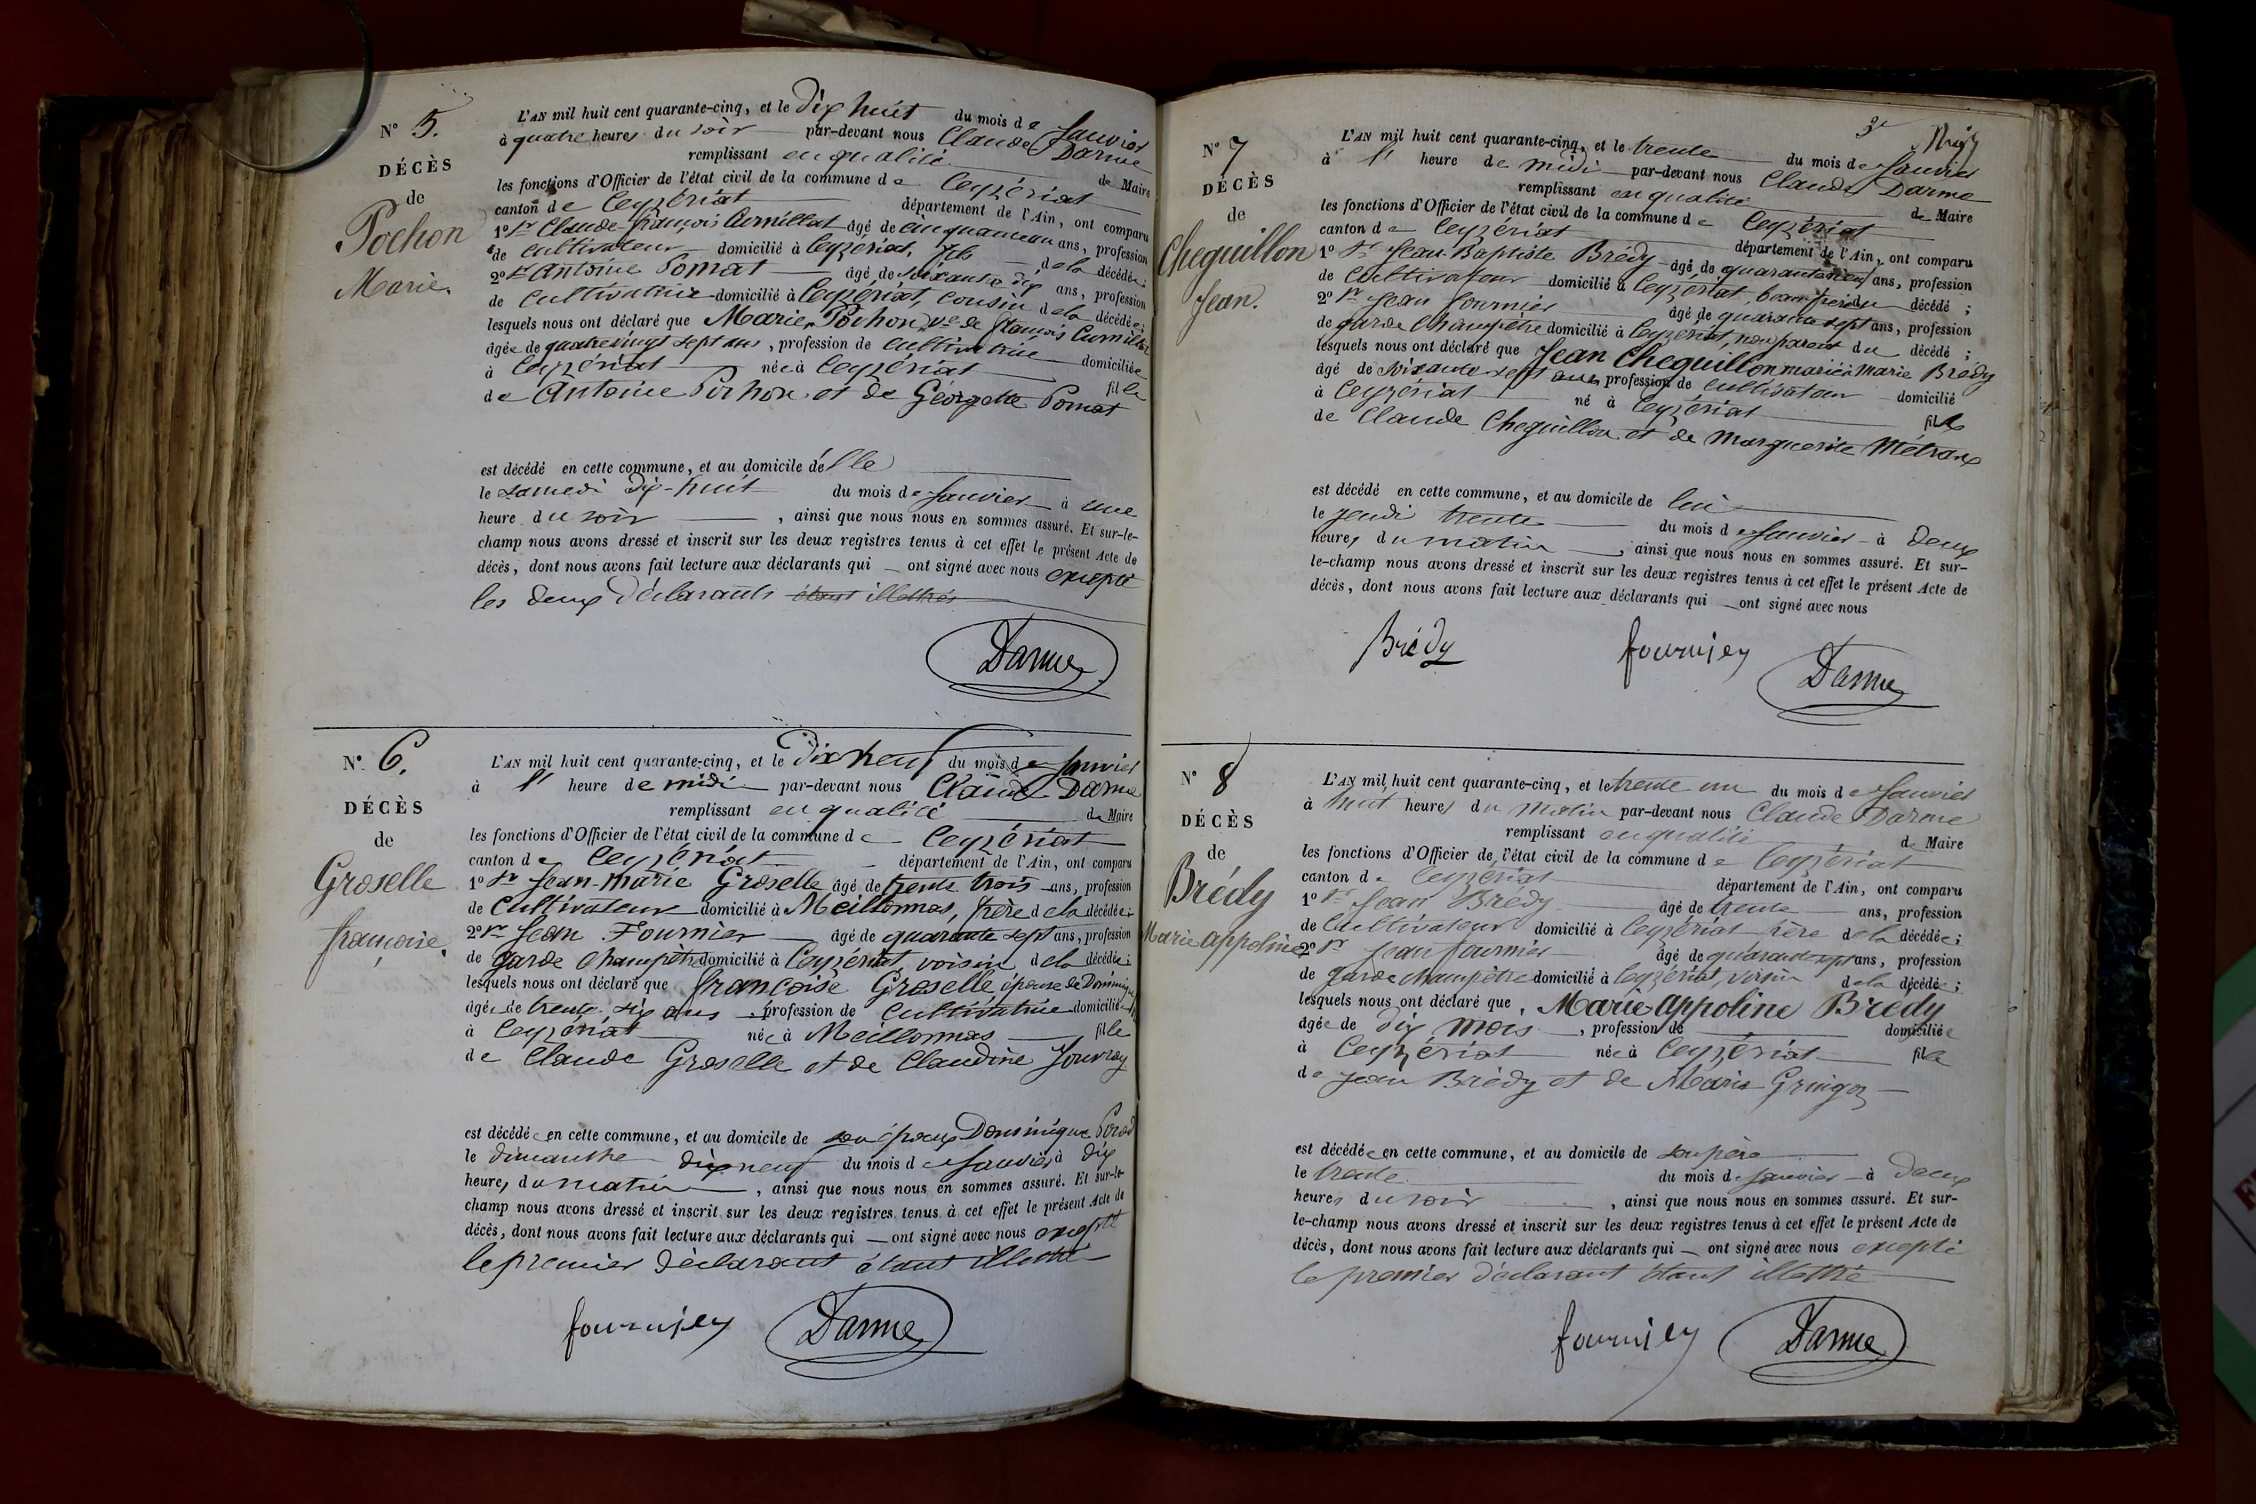 N° 5.
DÉCÈS
de
Pochon
Marie.
L'AN mil huit cent quarante-cinq, et le Dix huit du mois de Janvier
à quatre heures du soir par-devant nous Claude Darme
remplissant en qualité de Maire
les fonctions d'Officier de l'état civil de la commune de Ceyzériat
canton de Ceyzériat département de l'Ain, ont comparu
1° Sr Claude-françois Curnillat âgé de ans, profession
de cultivateur domicilié à Ceyzériat, fils de la décédée;
2° Sr Antoine Pomat âgé de Soixante dix ans, profession
de Cultivatrice domicilié à Ceyzériat, cousin de la décédée;
lesquels nous ont déclaré que Marie Pochon ve de françois Curnillat
âgée de quatrevingt sept ans, profession de cultivatrice domiciliée
à Ceyzériat née à Ceyzériat fille
de Antoine Pochon et de Géorgette Pomat
est décédé en cette commune, et au domicile d'elle
le samedi dix-huit du mois de Janvier à une
heure du soir, ainsi que nous nous en sommes assuré. Et sur-le-
champ nous avons dressé et inscrit sur les deux registres tenus à cet effet le présent Acte de
décès, dont nous avons fait lecture aux déclarants qui — ont signé avec nous excepté
les deux déclarants étant illettrés
Darme
N° 6.
DÉCÈS
de
Groselle
françoise.
L'AN mil huit cent quarante-cinq, et le Dix neuf du mois de Janvier
à 1' heure de midi par-devant nous Claude Darme
remplissant en qualité de Maire
les fonctions d'Officier de l'état civil de la commune de Ceyzériat
canton de Ceyzériat département de l'Ain, ont comparu
1° Sr Jean-Marie Groselle âgé de trente trois ans, profession
de Cultivateur domicilié à Meillonnas, frère de la décédée;
2° Sr Jean Fournier âgé de quarante sept ans, profession
de garde Champêtre domicilié à Ceyzériat voisin de la décédée;
lesquels nous ont déclaré que françoise Groselle épouse de Dominique
âgée de trente six ans, profession de Cultivatrice domiciliée
à Ceyzériat née à Meillonnas fille
de Claude Groselle et de Claudine Jouvray
est décédée en cette commune, et au domicile de son époux Dominique
le dimanche dix neuf du mois de Janvier à dix
heures du matin, ainsi que nous nous en sommes assuré. Et sur-le-
champ nous avons dressé et inscrit sur les deux registres tenus à cet effet le présent Acte de
décès, dont nous avons fait lecture aux déclarants qui — ont signé avec nous excepté
le premier déclarant étant illettré
fournier Darme
N° 7
DÉCÈS
de
Cheguillon
Jean.
L'AN mil huit cent quarante-cinq, et le trente du mois de Janvier
à 1' heure de midi par-devant nous Claude Darme
remplissant en qualité de Maire
les fonctions d'Officier de l'état civil de la commune de Ceyzériat
canton de Ceyzériat département de l'Ain, ont comparu
1° Sr Jean-Baptiste Brédy âgé de ans, profession
de Cultivateur domicilié à Ceyzériat, beaufrère du décédé;
2° Sr Jean Fournier âgé de quarante sept ans, profession
de garde Champêtre domicilié à Ceyzériat, non parent du décédé;
lesquels nous ont déclaré que Jean Cheguillon marié à Marie Brédy
âgé de Soixante sept ans profession de cultivateur domicilié
à Ceyzériat né à Ceyzériat fils
de Claude Cheguillon et de Marguerite Métraux
est décédé en cette commune, et au domicile de lui
le jeudi trente du mois de Janvier à deux
heures du matin, ainsi que nous nous en sommes assuré. Et sur-
le-champ nous avons dressé et inscrit sur les deux registres tenus à cet effet le présent Acte de
décès, dont nous avons fait lecture aux déclarants qui — ont signé avec nous
Brédy fournier Darme
N° 8
DÉCÈS
de
Brédy
Marie appoline
L'AN mil huit cent quarante-cinq, et le trente un du mois de Janvier
à huit heures du matin par-devant nous Claude Darme
remplissant en qualité de Maire
les fonctions d'Officier de l'état civil de la commune de Ceyzériat
canton de Ceyzériat département de l'Ain, ont comparu
1° Sr Jean Brédy âgé de trente ans, profession
de Cultivateur domicilié à Ceyzériat père de la décédée;
2° Sr Jean fournier âgé de quarante sept ans, profession
de garde champêtre domicilié à Ceyzériat, voisin de la décédée;
lesquels nous ont déclaré que Marie appoline Brédy
âgée de dix mois, profession de domiciliée
à Ceyzériat née à Ceyzériat fille
de Jean Brédy et de Marie Gringoz
est décédée en cette commune, et au domicile de son père
le trente du mois de Janvier à deux
heures du soir, ainsi que nous nous en sommes assuré. Et sur-
le-champ nous avons dressé et inscrit sur les deux registres tenus à cet effet le présent Acte de
décès, dont nous avons fait lecture aux déclarants qui — ont signé avec nous excepté
le premier déclarant étant illettré
fournier Darme